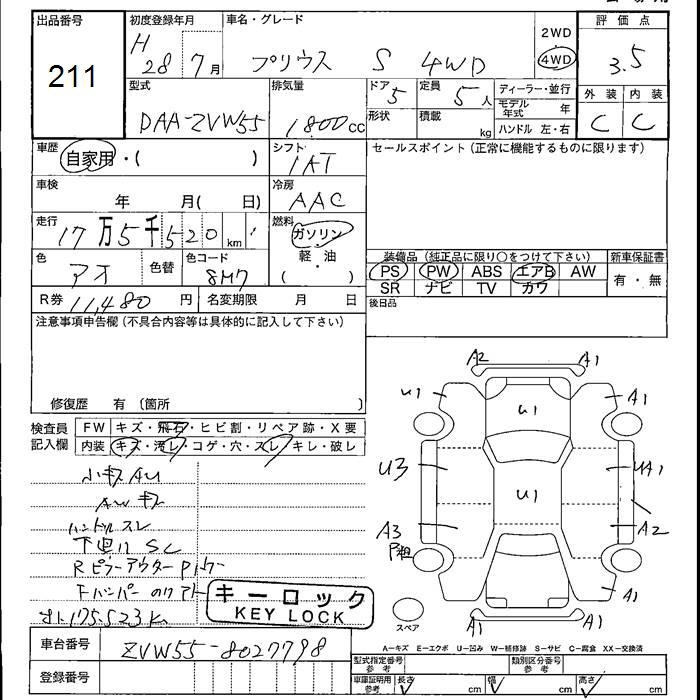 出品番号
211
初度登録年月
H 28 7月
車名・グレード
プリウス S 4WD
2WD
4WD
評価点
3.5
外装 内装
C C
型式
DAA-ZVW55
排気量
1,800cc
ドア 5
形状
定員 5人
積載 kg
ディーラー・並行
モデル年式 年
ハンドル 左・右
車歴
自家用・( )
シフト
IAT
セールスポイント(正常に機能するものに限ります)
車検
年 月( 日)
冷房
AAC
走行
17万5千520km
燃料
ガソリン・
軽・油
( )
色
アオ
色替
色コード
8M7
R券 11,480円
名変期限 月 日
装備品(純正品に限り○をつけて下さい)
PS PW ABS エアB AW
SR ナビ TV カワ
新車保証書
有・無
後日品
注意事項申告欄(不具合内容等は具体的に記入して下さい)
修復歴 有 〔箇所 〕
検査員記入欄
FW キズ・飛石・ヒビ割・リペア跡・X要
内装 キズ・汚レ・コゲ・穴・スレ・キレ・破レ
小キズAU
AWキズ
ハンドルスレ
下廻りSC
Rピラーアウター
Fバンパー
175,523K
キーロック
KEY LOCK
A2
A1
U1
A1
U1
U3
U1
UA1
A3
A2
A1
A1
A1
スペア
A=キズ E=エクボ U=凹み W=補修跡 S=サビ C=腐食 XX=交換済
車台番号
ZVW55-8027798
登録番号
型式指定番号 参考
類別区分番号 参考
車庫証明用 参考
長さ cm
幅 cm
高さ cm